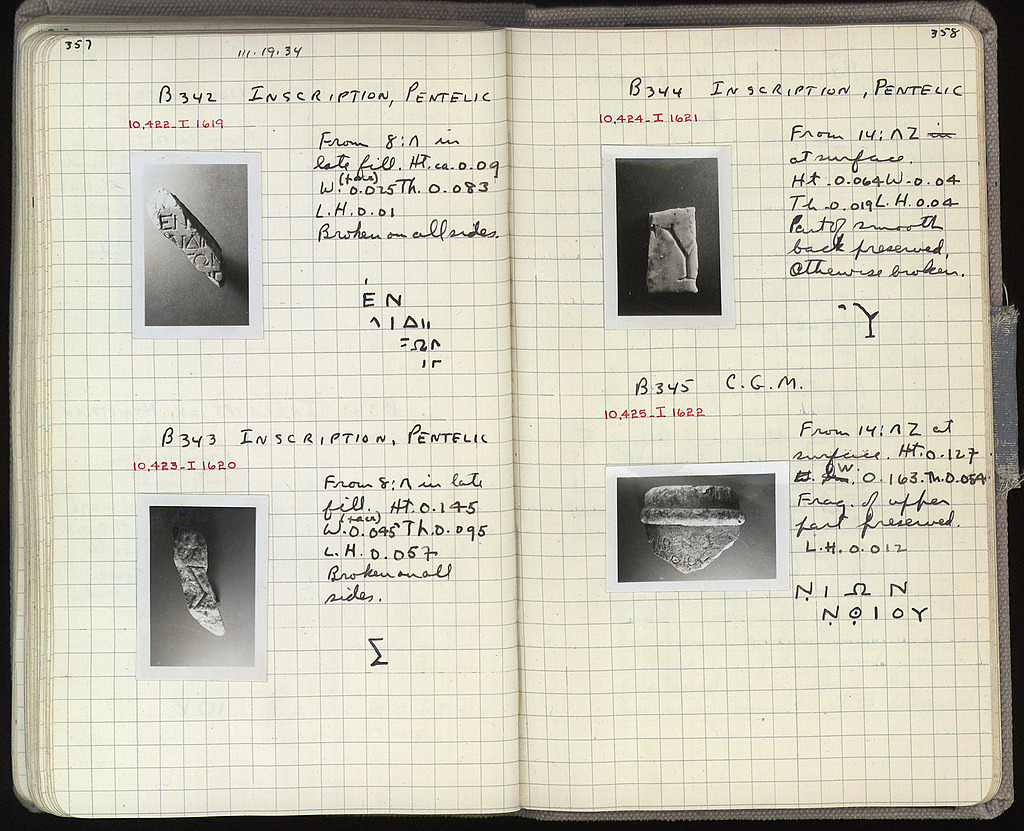 357
III.19.34
B342 INSCRIPTION, PENTELIC
10,422_I 1619
From 8:Λ in
late fill. Ht. ca. 0.09
(face)
W. 0.025 Th. 0.083
L.H. 0.01
Broken on all sides.
ΕΝ
ΙΔ
ΩΛ
ΙΓ
B343 INSCRIPTION, PENTELIC
10,423_I 1620
From 8:Λ in late
fill. Ht. 0.145
(face)
W. 0.045 Th. 0.095
L.H. 0.057
Broken on all
sides.
Σ
358
B344 INSCRIPTION, PENTELIC
10,424_I 1621
From 14:ΛΖ in
at surface.
Ht. 0.064 W. 0.04
Th. 0.019 L.H. 0.04
Part of smooth
back preserved,
otherwise broken.
Υ
B345 C.G.M.
10,425_I 1622
From 14:ΛΖ at
surface. Ht. 0.127
W. 0.163. Th. 0.054
Frag. of upper
part preserved.
L.H. 0.012
Ṇ Ι Ω Ν
Ṇ Θ̣ Ι Ο Υ